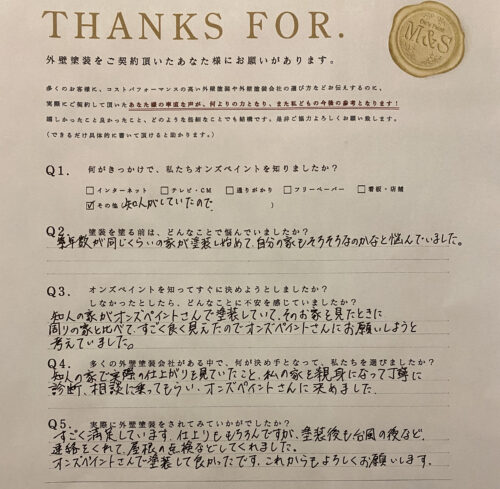 THANKS FOR.
M&S
外壁塗装をご契約頂いたあなた様にお願いがあります。
多くのお客様に、コストパフォーマンスの高い外壁塗装や外壁塗装会社の選び方などお伝えするのに、
実際にご契約して頂いたあなた様の率直な声が、何よりの力となり、また私どもの今後の参考となります！
嬉しかったこと良かったこと、どのような些細なことでも結構です。是非ご協力よろしくお願い致します。
（できるだけ具体的に書いて頂けると助かります。）
Q1. 何がきっかけで、私たちオンズペイントを知りましたか？
□インターネット □テレビ・CM □通りがかり □フリーペーパー □看板・店舗
☑その他 知人がしていたので )
Q2. 塗装を塗る前は、どんなことで悩んでいましたか？
築年数が同じくらいの家が塗装し始めて、自分の家もそろそろなのかなと悩んでいました。
Q3. オンズペイントを知ってすぐに決めようとしましたか？
しなかったとしたら、どんなことに不安を感じていましたか？
知人の家がオンズペイントさんで塗装していて、そのお家を見たときに
周りの家と比べて、すごく良く見えたのでオンズペイントさんにお願いしようと
考えていました。
Q4. 多くの外壁塗装会社がある中で、何が決め手となって、私たちを選びましたか？
知人の家で実際の仕上がりを見ていたこと、私の家を親身になって丁寧に
診断、相談に乗ってもらい、オンズペイントさんに決めました。
Q5. 実際に外壁塗装をされてみていかがでしたか？
すごく満足しています。仕上りももちろんですが、塗装後も台風の後など、
連絡をくれて、屋根の点検などしてくれました。
オンズペイントさんで塗装して良かったです。これからもよろしくお願いします。